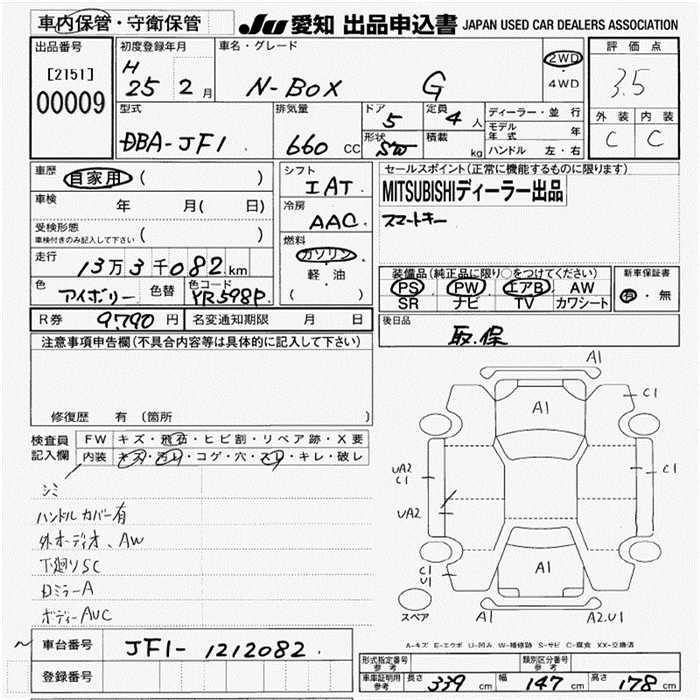 車内保管・守衛保管 JU 愛知 出品申込書 JAPAN USED CAR DEALERS ASSOCIATION
出品番号 初度登録年月 車名・グレード 2WD・4WD 評価点
[2151] H 25 2月 N-BOX G 3.5
00009
型式 排気量 ドア 5 定員 4人 ディーラー・並行 外装 内装
DBA-JF1 660 CC 形状 SW 積載 kg モデル年式 年 C C
ハンドル 左・右
車歴 自家用 ( ) シフト IAT セールスポイント(正常に機能するものに限ります)
車検 年 月( 日) 冷房 AAC MITSUBISHIディーラー出品
受検形態 車検付きのみ記入して下さい ( ) 燃料 ガソリン スマートキー
走行 13万3千082km 軽・油
( ) 装備品(純正品に限り○をつけてください) 新車保証書
色 アイボリー 色替 色コード YR598P PS PW エアB AW 有・無
SR ナビ TV カワシート
R券 9,790円 名変通知期限 月 日 後日品
取.保
注意事項申告欄(不具合内容等は具体的に記入して下さい)
修復歴 有 (箇所 )
検査員記入欄 FW キズ・飛石・ヒビ割・リペア跡・X要
内装 キズ・汚レ・コゲ・穴・スレ・キレ・破レ
シミ
ハンドルカバー有
外オーディオ、AW
下廻りSC
Dミラー A
ボディー AUC
A1
A1 C1
UA2
C1 C1
UA2
C1
U1 A1
スペア A1 A2.U1
A-キズ E-エクボ U-凹み W-補修跡 S-サビ C-腐食 XX-交換済
車台番号 JF1-1212082
登録番号
形式指定番号 参考 類別区分番号 参考
車庫証明用 参考 長さ 339 cm 幅 147 cm 高さ 178 cm